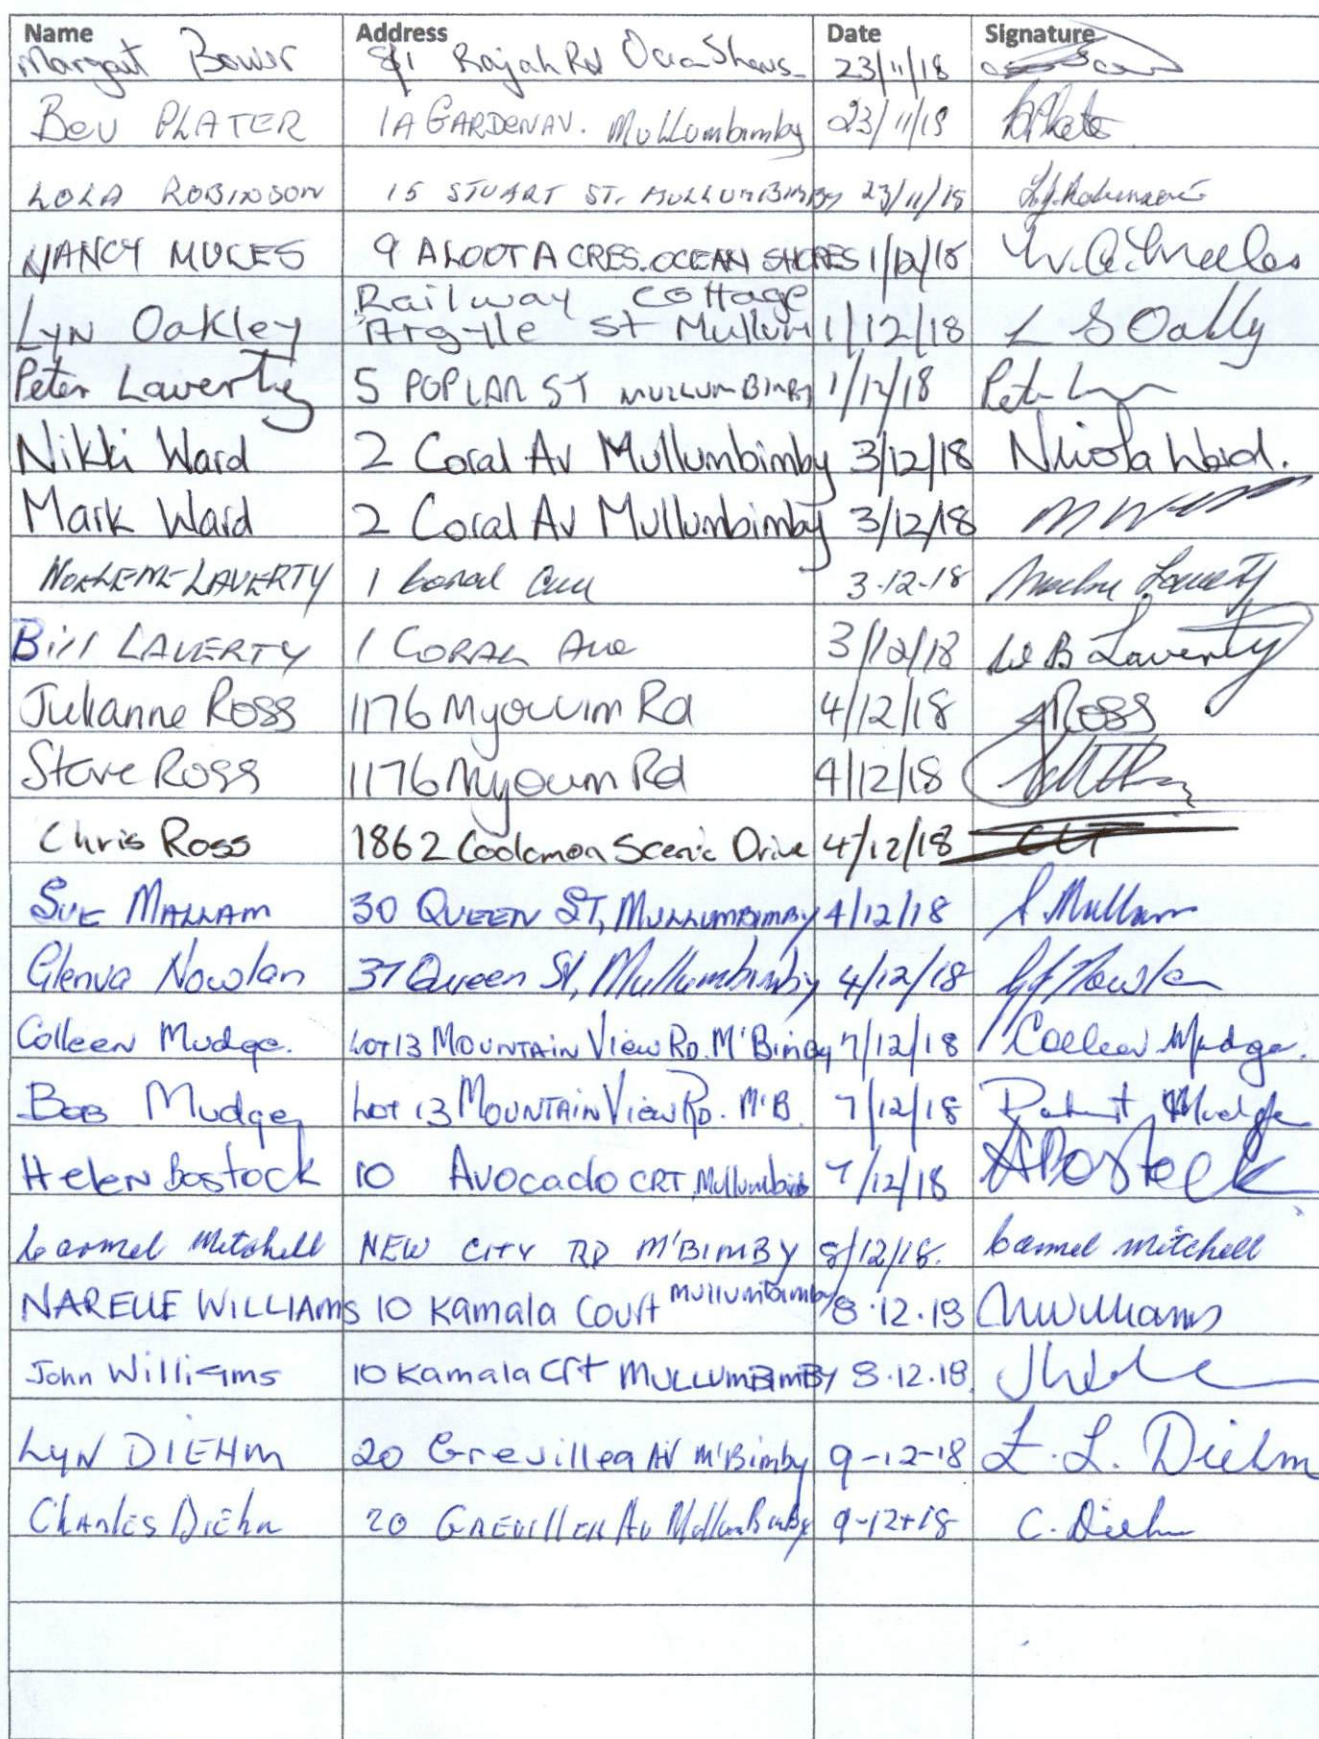 Name Address Date Signature
Margaret Bower 8/1 Rajah Rd Ocean Shores 23/11/18
Bev PLATER 1A GARDEN AV. Mullumbimby 23/11/18 B Plater
LOLA ROBINSON 15 STUART ST. MULLUMBIMBY 23/11/18
NANCY MULES 9 ALOOTA CRES. OCEAN SHORES 1/12/18
Railway Cottage
Lyn Oakley Argyle St Mullum 1/12/18 L S Oakly
Peter Laverty 5 POPLAR ST MULLUMBIMBY 1/12/18
Nikki Ward 2 Coral Av Mullumbimby 3/12/18 Nicola Ward.
Mark Ward 2 Coral Av Mullumbimby 3/12/18
NOELENE LAVERTY 1 Coral Ave 3-12-18
Bill LAVERTY 1 CORAL Ave 3/12/18 W B Laverty
Julianne Ross 1176 Myocum Rd 4/12/18 JRoss
Steve Ross 1176 Myocum Rd 4/12/18
Chris Ross 1862 Coolamon Scenic Drive 4/12/18
SUE MALLAM 30 QUEEN ST, MULLUMBIMBY 4/12/18 S Mallam
Glenva Nowlan 37 Queen St, Mullumbimby 4/12/18
Colleen Mudge. LOT 13 MOUNTAIN View RD. M'Bimby 7/12/18 Colleen Mudge.
Bob Mudge Lot 13 MOUNTAIN View RD. M'B. 7/12/18 Robert Mudge
Helen Bostock 10 Avocado CRT, Mullumbimby 7/12/18
Carmel Mitchell NEW CITY RD M'BIMBY 8/12/18. Carmel mitchell
NARELLE WILLIAMS 10 Kamala Court Mullumbimby 8.12.18 NWilliams
John Williams 10 Kamala Crt MULLUMBIMBY 8.12.18
Lyn DIEHM 20 Grevillea AV M'Bimby 9-12-18 L. L. Diehm
Charles Diehm 20 GREVILLEA Av MullumBimby 9-12-18 C. Diehm